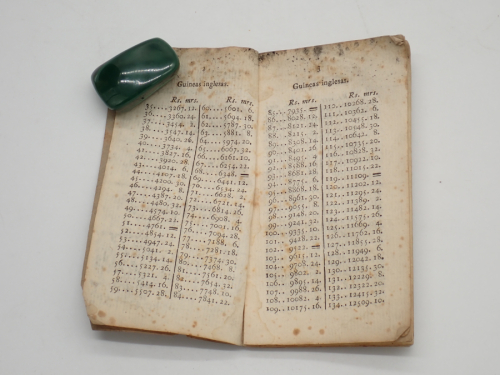 Guineas inglesas.
Rs. mrs.
35...3267. 12.
36...3360. 24.
37...3454. 2.
38...3547. 14.
39...3640. 26.
40...3734. 4.
41...3827. 16.
42...3920. 28.
43...4014. 6.
44...4107. 18.
45...4200. 30.
46...4294. 8.
47...4387. 20.
48...4480. 32.
49...4574. 10.
50...4667. 22.
51...4761. =
52...4854. 12.
53...4947. 24.
54...5041. 2.
55...5134. 14.
56...5227. 26.
57...5321. 4.
58...5414. 16.
59...5507. 28.
Rs. mrs.
60...5601. 6.
61...5694. 18.
62...5787. 30.
63...5881. 8.
64...5974. 20.
65...6067. 32.
66...6161. 10.
67...6254. 22.
68...6348. =
69...6441. 12.
70...6534. 24.
71...6628. 2.
72...6721. 14.
73...6814. 26.
74...6908. 4.
75...7001. 16.
76...7094. 28.
77...7188. 6.
78...7281. 18.
79...7374. 30.
80...7468. 8.
81...7561. 20.
82...7654. 32.
83...7748. 10.
84...7841. 22.
Guineas inglesas.
Rs. mrs.
85...7935. =
86...8028. 12.
87...8121. 24.
88...8215. 2.
89...8308. 14.
90...8401. 26.
91...8495. 4.
92...8588. 16.
93...8681. 28.
94...8775. 6.
95...8868. 18.
96...8961. 30.
97...9055. 8.
98...9148. 20.
99...9241. 32.
100...9335. 10.
101...9428. 22.
102...9522. =
103...9615. 12.
104...9708. 24.
105...9802. 2.
106...9895. 14.
107...9988. 26.
108..10082. 4.
109..10175. 16.
Rs. mrs.
110...10268. 28.
111...10362. 6.
112...10455. 18.
113...10548. 30.
114...10642. 8.
115...10735. 20.
116...10828. 32.
117...10922. 10.
118...11015. 22.
119...11109. =
120...11202. 12.
121...11295. 24.
122...11389. 2.
123...11482. 14.
124...11575. 26.
125...11669. 4.
126...12762. 16.
127...11855. 28.
128...11949. 6.
129...12042. 18.
130...12135. 30.
131...12229. 8.
132...12322. 20.
133...12415. 32.
134...12509. 10.